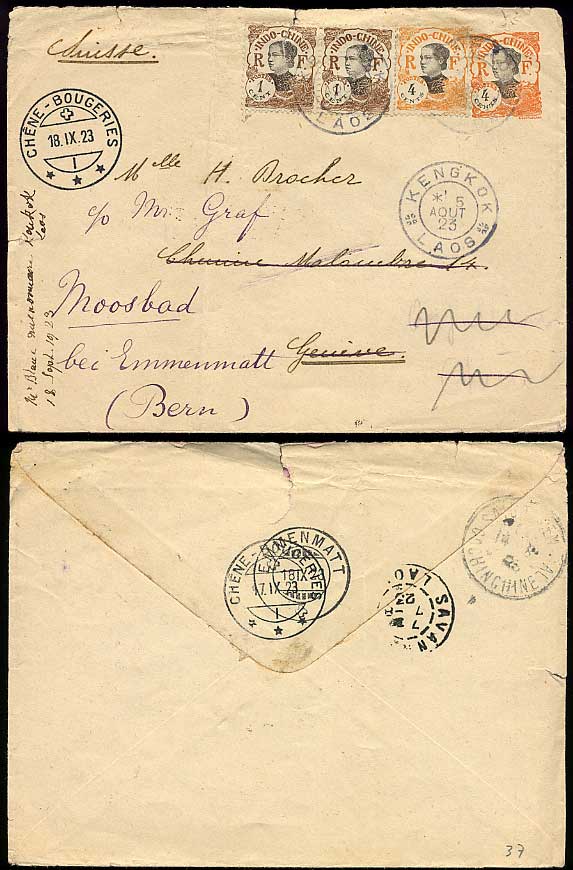 Suisse.
INDO-CHINE
R F
POSTES
1 CENT
INDO-CHINE
R F
POSTES
1 CENT
INDO-CHINE
R F
POSTES
4 CENTS
INDO-CHINE
R F
POSTES
4 CENTS
LAOS
CHÊNE-BOUGERIES
18.IX.23
1
KENGKOK
* 5
AOUT
23
LAOS
Mlle H. Brocher
c/o Mr. Graf
Moosbad
bei Emmenmatt Genève.
(Bern)
Mr Blanc missionnaire
Laos
18 Sept. 1923
EMMENMATT
18 IX
CHÊNE-BOUGERIES
17.IX.23
1
SAVAN
LAO
7
7
23
COCHINCHINE
37